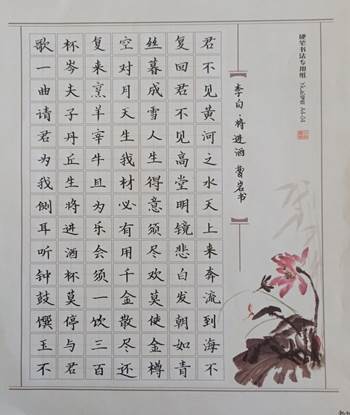 硬笔书法专用纸
李白·将进酒 曹岩书
君不见黄河之水天上来奔流到海不
复回君不见高堂明镜悲白发朝如青
丝暮成雪人生得意须尽欢莫使金樽
空对月天生我材必有用千金散尽还
复来烹羊宰牛且为乐会须一饮三百
杯岑夫子丹丘生将进酒杯莫停与君
歌一曲请君为我侧耳听钟鼓馔玉不